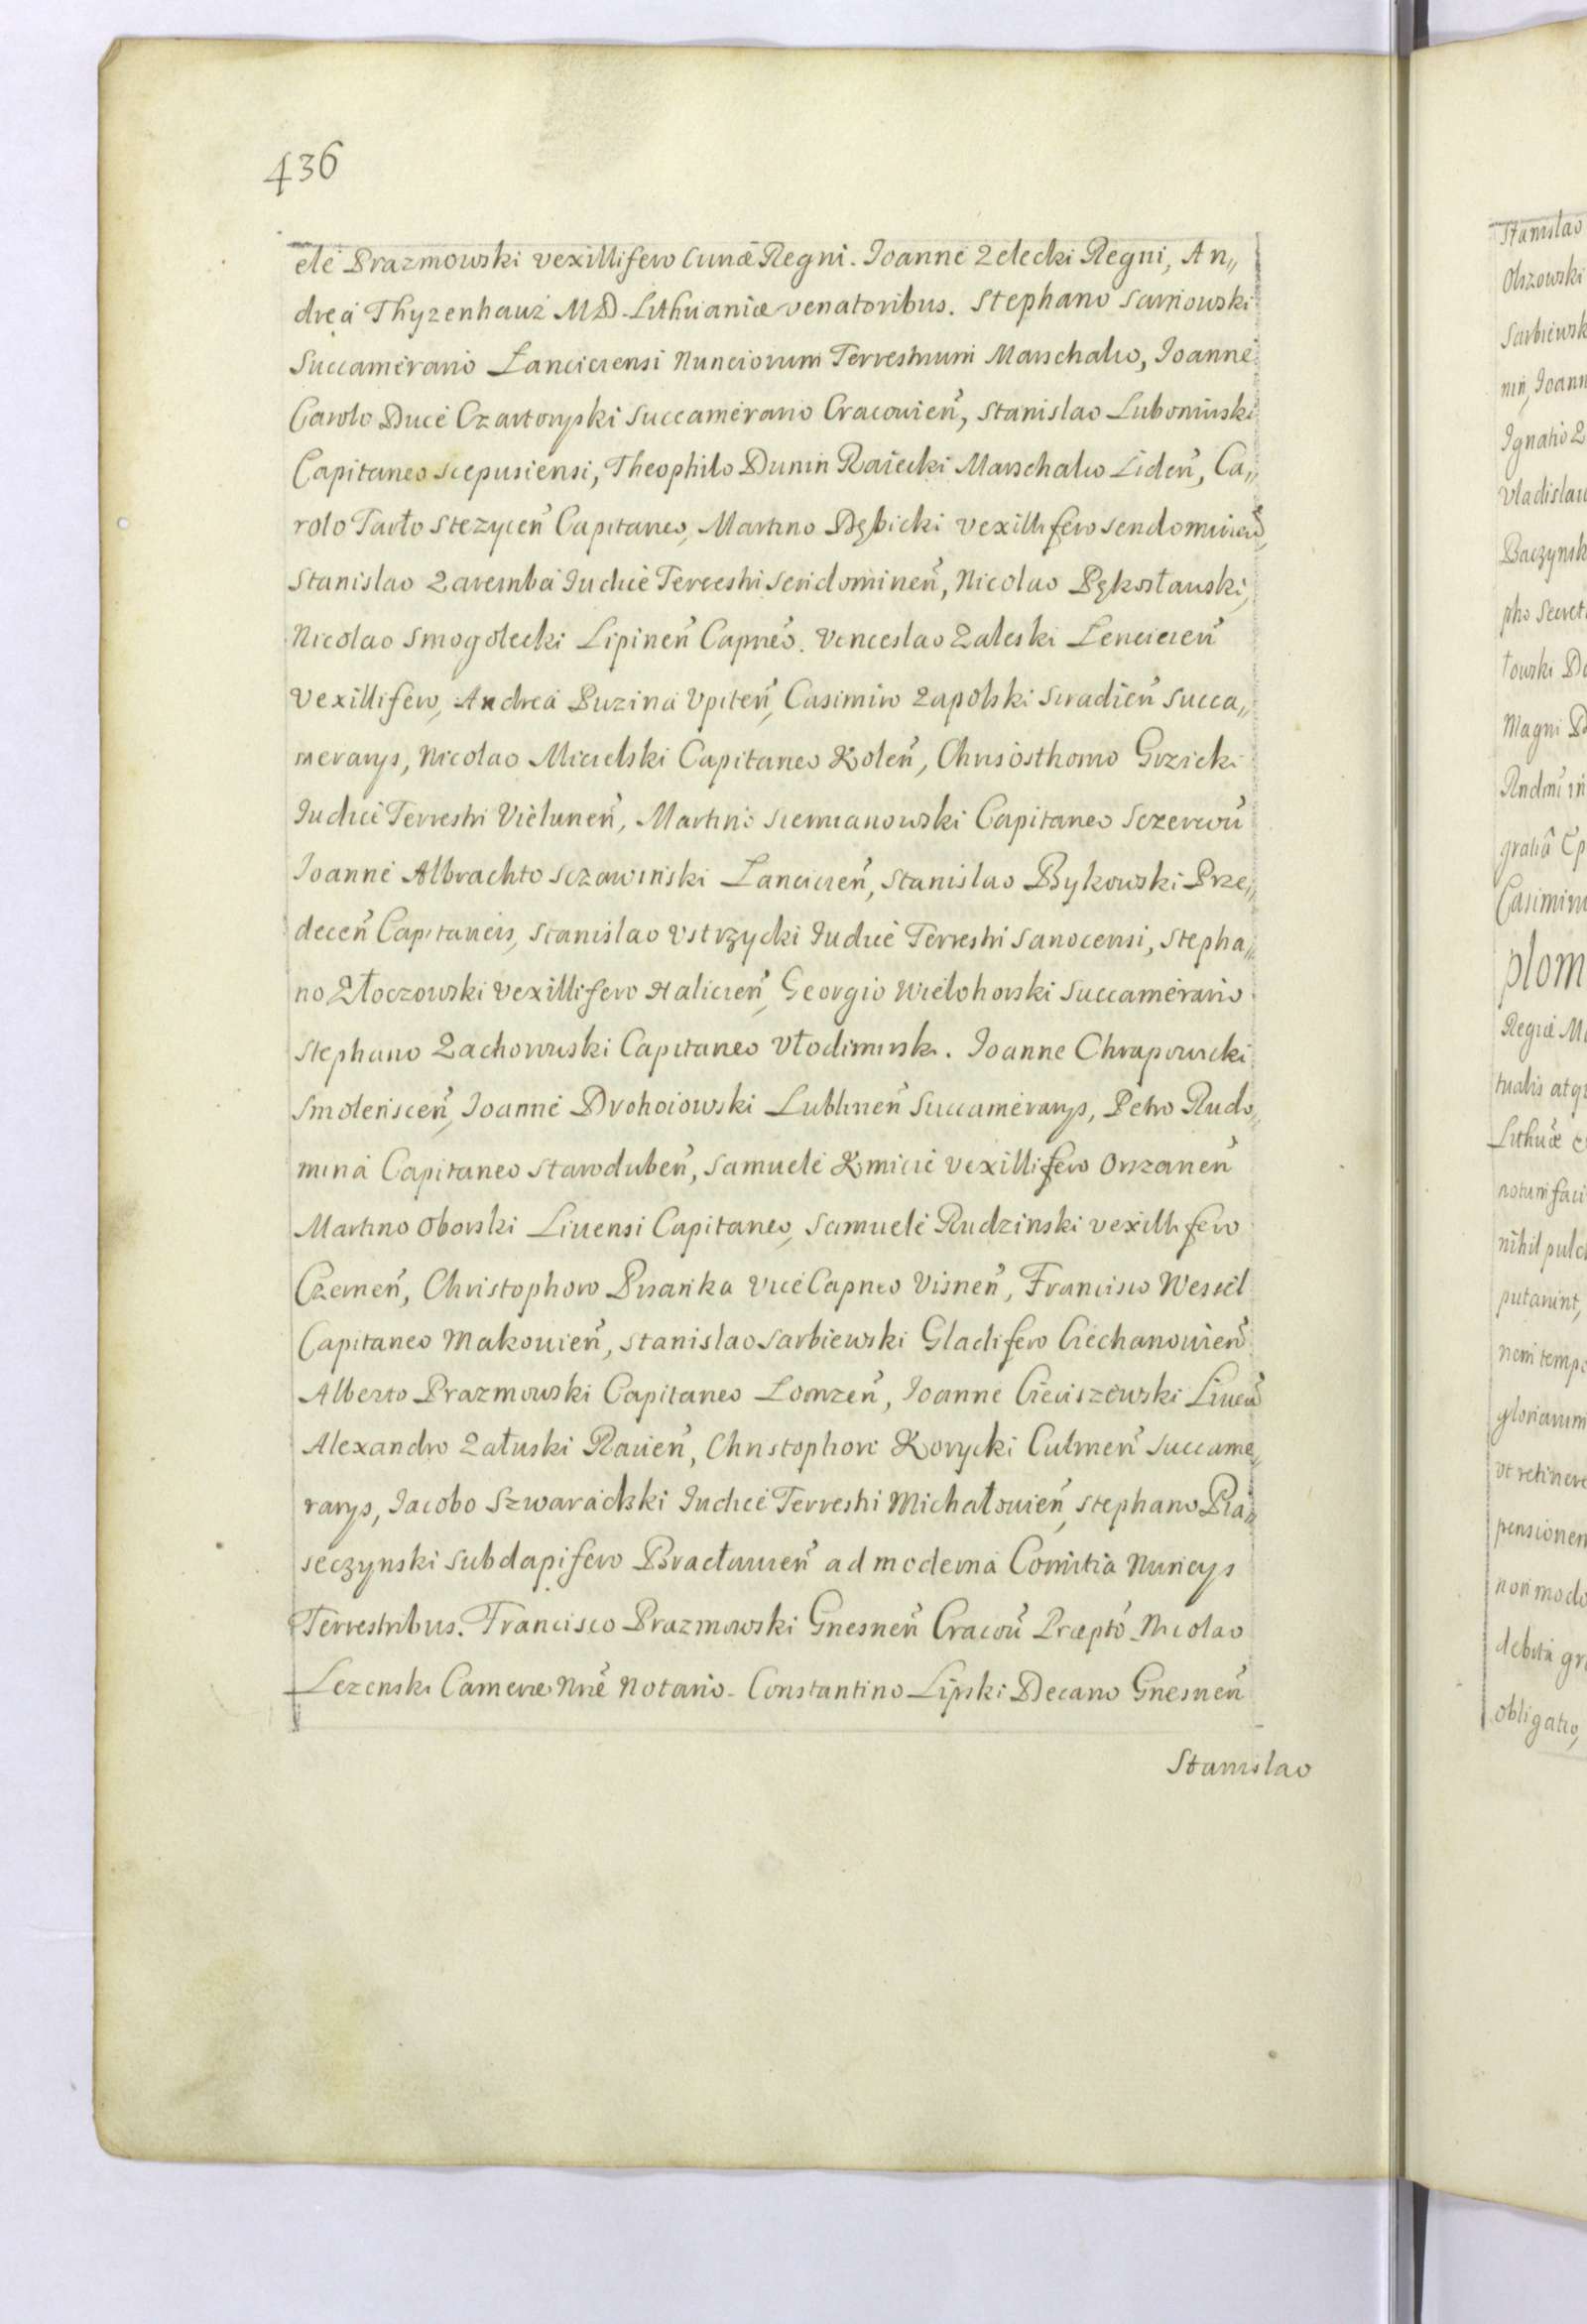 436
ele Prazmowski vexillifero Curiæ Regni. Joanne Zelecki Regni, An„
drea Thyzenhauz M D. Lithuaniæ venatoribus. Stephano Sarnowski
Succamerario Lanciciensi Nunciorum Terrestrium Marschalco, Joanne
Carolo Duce Czartoryski Succamerario Cracovien̄, Stanislao Lubomirski
Capitaneo Scepusiensi, Theophilo Dunin Raiecki Marschalco Liden̄, Ca„
rolo Tarło Stezycen̄ Capitaneo, Martino Dębicki vexillifero Sendomirien̄,
Stanislao Zaremba Judice Terrestri Sendomirien̄, Nicolao Pękosławski,
Nicolao Smogolecki Lipinen̄ Capneo. Venceslao Zaleski Lencicien̄
Vexillifero, Andrea Puzina Vpiten̄, Casimiro Zapolski Siradien̄ Succa„
merarys, Nicolao Micielski Capitaneo Kolen̄, Chrisosthomo Grzicki
Judice Terrestri Vielunen̄, Martino Siemianowski Capitaneo Sczercou̅
Joanne Albrachto Sczawiński Lancicien̄, Stanislao Bykowski Prze„
decen̄ Capitaneis, Stanislao Vstrzycki Judice Terrestri Sanocensi, Stepha„
no Złoczowski vexillifero Halicien̄, Georgio Wielohorski Succamerario
Stephano Zachorowski Capitaneo Vłodimirsk. Joanne Chrapowicki
Smolenscen̄, Joanne Drohoiowski Lublinen̄ Succamerarys, Petro Rudo„
mina Capitaneo Staroduben̄, Samuele Kmicic vexillifero Orszanen̄
Martino Oborski Livensi Capitaneo, Samuele Rudzinski vexillifero
Czernen̄, Christophoro Pisanka Vice Capneo Visnen̄, Francisco Wessel
Capitaneo Makovien̄, Stanislao Sarbiewski Gladifero Ciechanovien̄
Alberto Prazmowski Capitaneo Lomzen̄, Joanne Cieciszewski Liven̄
Alexandro Załuski Ravien̄, Christophoro Korycki Culmen̄ Succame„
rarys, Jacobo Szwaradzki Judice Terrestri Michałovien̄, Stephano Pia„
seczynski Subdapifero Bracłavien̄ ad moderna Comitia Nuncys
Terrestribus. Francisco Prazmowski Gnesnen̄ Cracou̅ Præpto. Nicolao
Lezenski Cameræ Nr̄e Notario. Constantino Lipski Decano Gnesnen̄
Stanislao
Stanislao
Olszowski
Sarbiewsk
nin̄, Joann
Ignatio Z
Vladislau
Baczynsk
pho Secret
towski D
Magni D
Rndmi in
gratia Ep
Casimiru
plom
Regiæ M
tualis atq
Lithuæ
notum faci
nihil pulc
putarint,
nem tempo
gloriarum
vt retinere
pensionem
non modo
debita gr
obligatio,